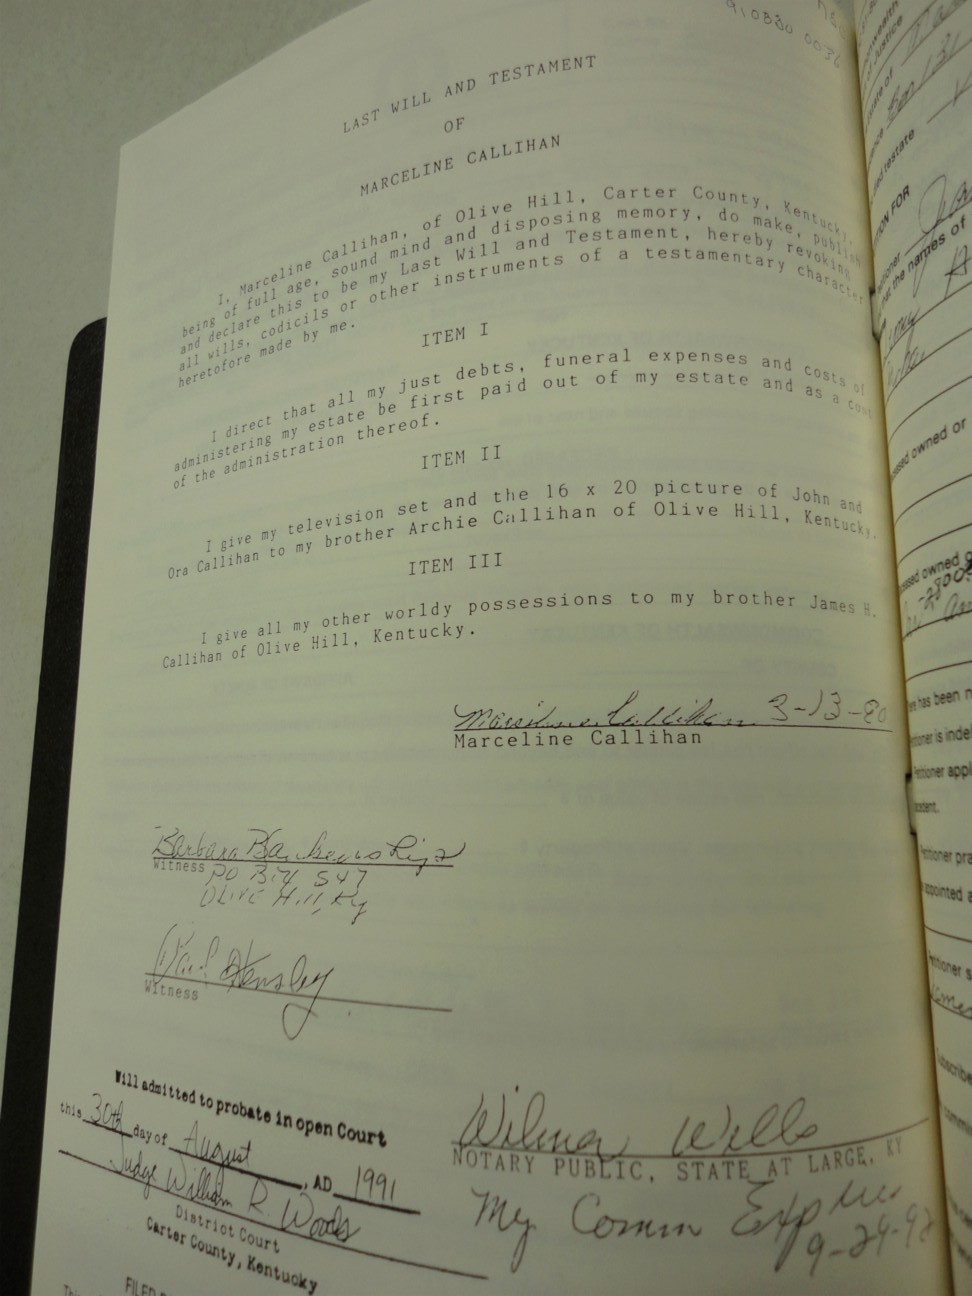 910830 0036
LAST WILL AND TESTAMENT
OF
MARCELINE CALLIHAN
I, Marceline Callihan, of Olive Hill, Carter County, Kentucky,
being of full age, sound mind and disposing memory, do make, publish
and declare this to be my Last Will and Testament, hereby revoking
all wills, codicils or other instruments of a testamentary character
heretofore made by me.
ITEM I
I direct that all my just debts, funeral expenses and costs of
administering my estate be first paid out of my estate and as a cost
of the administration thereof.
ITEM II
I give my television set and the 16 x 20 picture of John and
Ora Callihan to my brother Archie Callihan of Olive Hill, Kentucky.
ITEM III
I give all my other worldy possessions to my brother James H.
Callihan of Olive Hill, Kentucky.
Marceline Callihan 3-13-80
Marceline Callihan
Barbara Blankenship
Witness
PO Box 547
Olive Hill, Ky
Paul Hensley
Witness
Will admitted to probate in open Court
this 30th day of August, AD 1991
Judge William R. Woods
District Court
Carter County, Kentucky
FILED
Wilma Wells
NOTARY PUBLIC, STATE AT LARGE, KY
My Comm Expires
9-24-92
Justice
testate
TION FOR
the names of
owned or
owned o
ere has been n
itioner is inde
Petitioner appl
Petitioner pra
appointed a